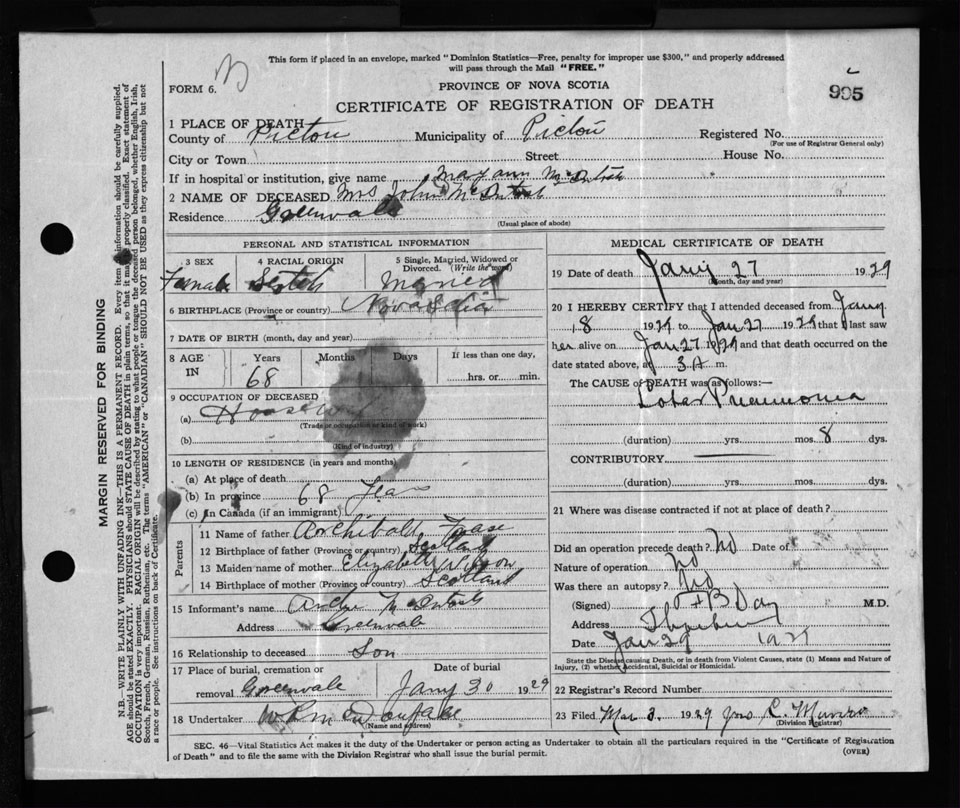 This form if placed in an envelope, marked "Dominion Statistics—Free, penalty for improper use $300," and properly addressed
will pass through the Mail "FREE."
FORM 6.
PROVINCE OF NOVA SCOTIA
995
CERTIFICATE OF REGISTRATION OF DEATH
1 PLACE OF DEATH
County of Pictou Municipality of Pictou Registered No.
(For use of Registrar General only)
City or Town Street House No.
If in hospital or institution, give name Mary ann McIntosh
2 NAME OF DECEASED Mrs John McIntosh
Residence Greenvale
(Usual place of abode)
PERSONAL AND STATISTICAL INFORMATION
3 SEX 4 RACIAL ORIGIN 5 Single, Married, Widowed or Divorced. (Write the word)
Female Scotch Married
6 BIRTHPLACE (Province or country) Nova Scotia
7 DATE OF BIRTH (month, day and year)
8 AGE IN Years Months Days If less than one day,
68 hrs. or min.
9 OCCUPATION OF DECEASED
(a) Housewife
(Trade or occupation or kind of work)
(b)
(Kind of industry)
10 LENGTH OF RESIDENCE (in years and months)
(a) At place of death
(b) In province 68
(c) In Canada (if an immigrant)
Parents
11 Name of father Archibald
12 Birthplace of father (Province or country) Scotland
13 Maiden name of mother Elizabeth
14 Birthplace of mother (Province or country) Scotland
15 Informant's name Archie McIntosh
Address Greenvale
16 Relationship to deceased Son
17 Place of burial, cremation or Date of burial
removal Greenvale Jany 30 1929
18 Undertaker
(Name and address)
MEDICAL CERTIFICATE OF DEATH
19 Date of death Jany 27 1929
(Month, day and year)
20 I HEREBY CERTIFY that I attended deceased from Jany
18 1929 to Jan 27 1929 that I last saw
her alive on Jan 27 1929 and that death occurred on the
date stated above, at 3 A m.
The CAUSE OF DEATH was as follows:—
Lobar Pneumonia
(duration) yrs. mos. 8 dys.
CONTRIBUTORY
(duration) yrs. mos. dys.
21 Where was disease contracted if not at place of death?
Did an operation precede death? No Date of
Nature of operation no
Was there an autopsy? No
(Signed) B Day M.D.
Address
Date Jan 29 1929
State the Disease causing Death, or in death from Violent Causes, state (1) Means and Nature of
Injury, (2) whether Accidental, Suicidal or Homicidal.
22 Registrar's Record Number
23 Filed Mar 3, 1929 Jno C. Munro
(Division Registrar)
SEC. 46—Vital Statistics Act makes it the duty of the Undertaker or person acting as Undertaker to obtain all the particulars required in the "Certificate of Registration
of Death" and to file the same with the Division Registrar who shall issue the burial permit.
(OVER)
MARGIN RESERVED FOR BINDING
N.B.—WRITE PLAINLY WITH UNFADING INK—THIS IS A PERMANENT RECORD. Every item of information should be carefully supplied.
AGE should be stated EXACTLY. PHYSICIANS should STATE CAUSE OF DEATH in plain terms, so that it may be properly classified. Exact statement of
OCCUPATION is very important. RACIAL ORIGIN will be described by stating to what people or tongue the deceased person belonged, whether English, Irish,
Scotch, French, German, Russian, Ruthenian, etc. The terms "AMERICAN" or "CANADIAN" SHOULD NOT BE USED as they express citizenship but not
a race or people. See instructions on back of Certificate.